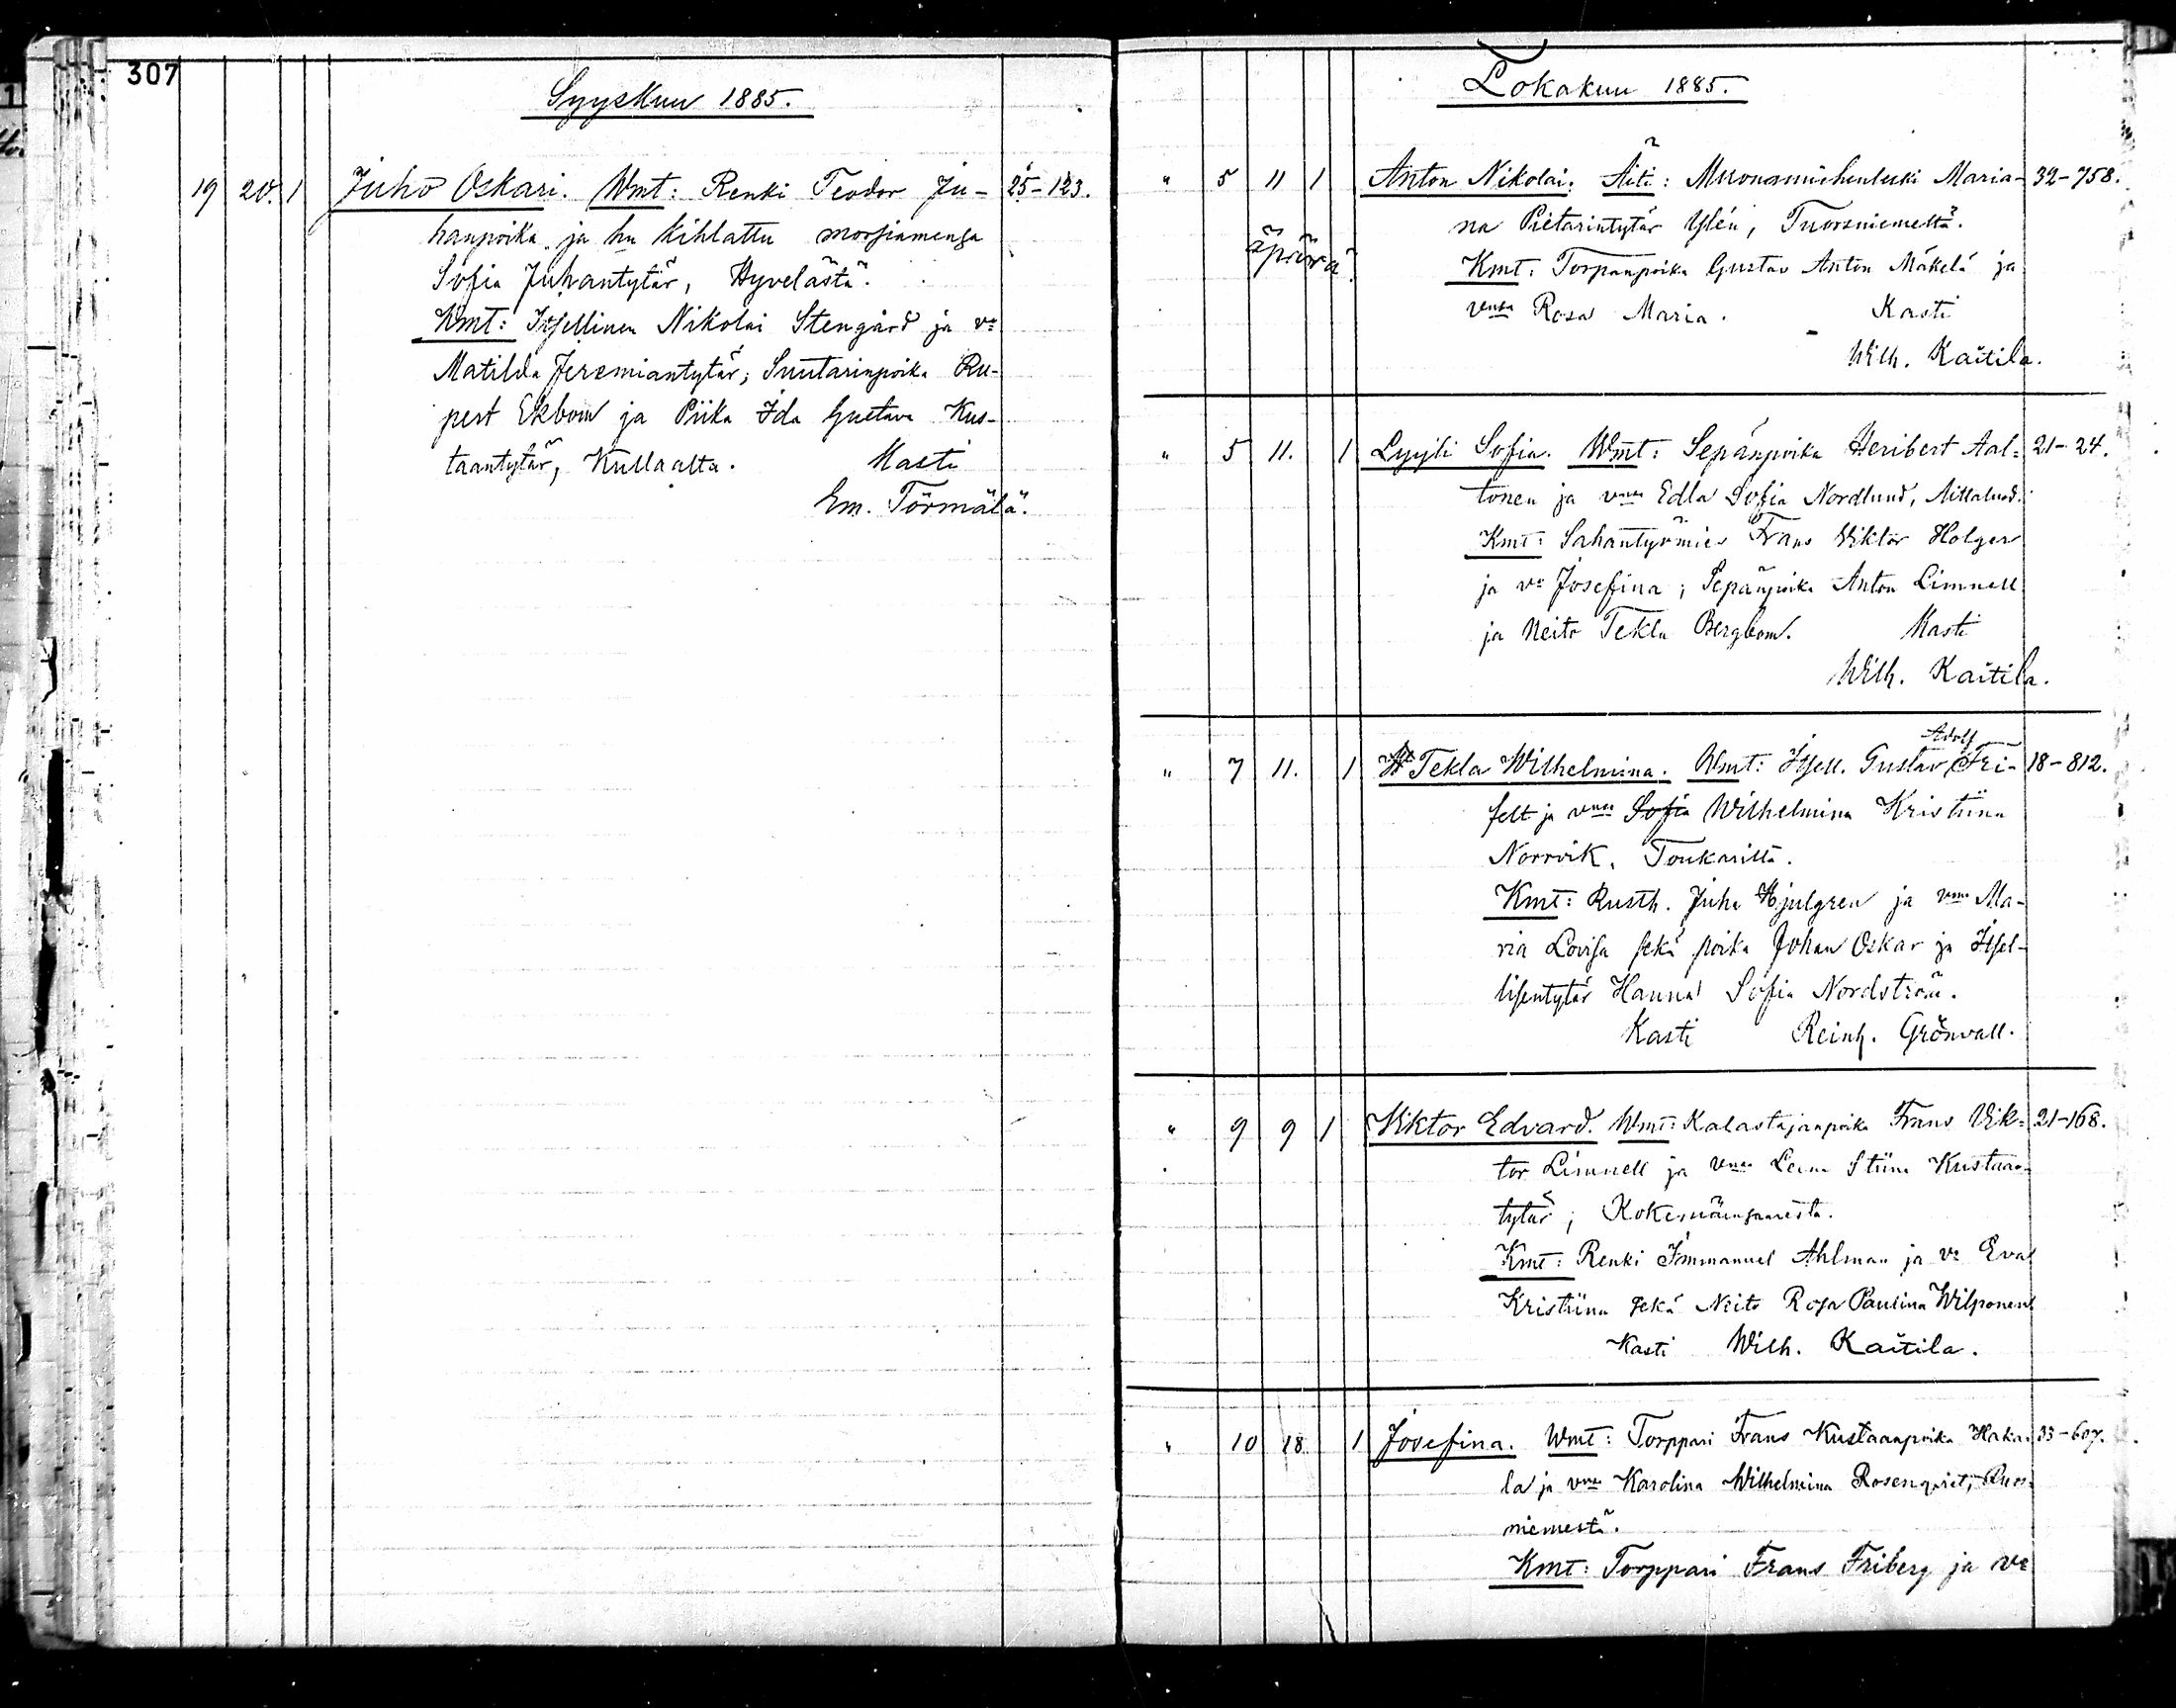 307
Syyskuu 1885.
19 20. 1 Juho Oskari. Wmt: Renki Teodor Ju- 25-123.
hanpoika ja hn kihlattu morsiamensa
Sofia Juhantytär, Hyvelästä.
Kmt: Itsellinen Nikolai Stengård ja vo
Matilda Jeremiantytär; Suutarinpoika Ru-
pert Ekbom ja Piika Ida Gustava Kus-
taantytär, Kullaalta. Kasti
Em. Törmälä.
Lokakuu 1885.
" 5 11 1 Anton Nikolai. Äiti: Muonamiehenleski Maria- 32-758.
na Pietarintytär Ylén, Tuorsniemeltä.
äpärä
Kmt: Torpanpoika Gustav Anton Mäkelä ja
vmsa Rosa Maria. Kasti
Wilh. Kaitila.
" 5 11. 1 Lyyli Sofia. Wmt: Sepänpoika Heribert Aal= 21-24.
tonen ja vmsa Edla Sofia Nordlund, Aittaluod.
Kmt: Sahantyömies Frans Viktor Holger
ja vo Josefina; Sepänpoika Anton Limnell
ja Neito Tekla Bergbom. Kasti
Wilh. Kaitila.
Adolf
" 7 11. 1 Tekla Wilhelmina. Wmt: Itsell. Gustav Fri- 18-812.
felt ja vmsa Sofia Wilhelmina Kristiina
Norrvik, Toukarilta.
Kmt: Rusth. Juha Hjulgren ja vmsa Ma-
ria Lovisa sekä poika Johan Oskar ja Itsel-
lisentytär Hanna Sofia Nordström.
Kasti Reinh. Grönvall.
" 9 9 1 Viktor Edvard. Wmt: Kalastajanpoika Frans Vik= 21-168.
tor Limnell ja vmsa Leena Stiina Kustaan-
tytär; Kokemäensaaresta.
Kmt: Renki Immanuel Ahlman ja vo Eva
Kristiina sekä Neito Rosa Paulina Wilponen
Kasti Wilh. Kaitila.
" 10 18 1 Josefina. Wmt: Torppari Frans Kustaanpoika Haka- 33-607.
la ja vmsa Karolina Wilhelmina Rosenqvist, Ruos-
niemestä.
Kmt: Torppari Frans Friberg ja vo